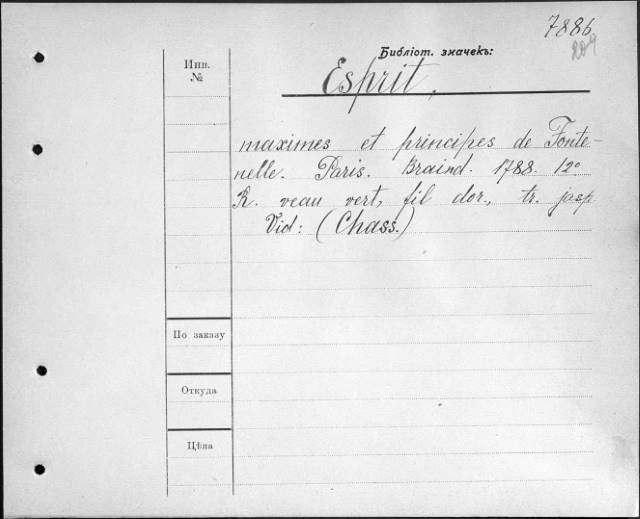 7886
209
Библіот. значекъ:
Инв.
№
Esprit,
maximes et principes de Fonte-
nelle. Paris. Braind. 1788. 12º
R. veau vert, fil dor., tr. jasp
Vid: (Chass.)
По заказу
Откуда
Цѣна